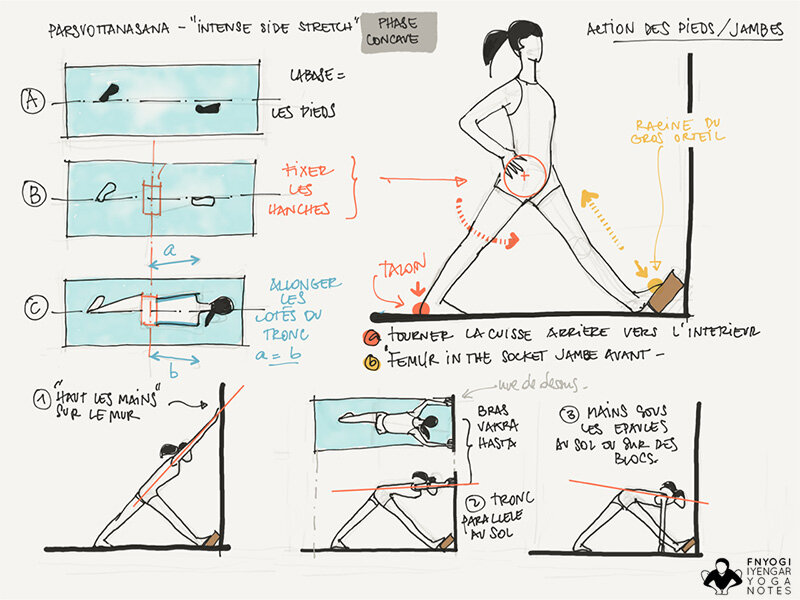 PARSVOTTANASANA - "INTENSE SIDE STRETCH"
PHASE
CONCAVE
ACTION DES PIEDS/JAMBES
A
LA BASE =
LES PIEDS
B
FIXER
LES
HANCHES
a
C
ALLONGER
LES
COTÉS DU
TRONC
a = b
b
RACINE DU
GROS ORTEIL
TALON
a TOURNER LA CUISSE ARRIÈRE VERS L'INTERIEUR
b "FEMUR IN THE SOCKET JAMBE AVANT -
1 "HAUT LES MAINS"
SUR LE MUR
vue de dessus.
BRAS
VAKRA
HASTA
2 TRONC
PARALLELE
AU SOL
3 MAINS SOUS
LES EPAULES
AU SOL OU SUR DES
BLOCS.
FNYOGI
IYENGAR
YOGA
NOTES